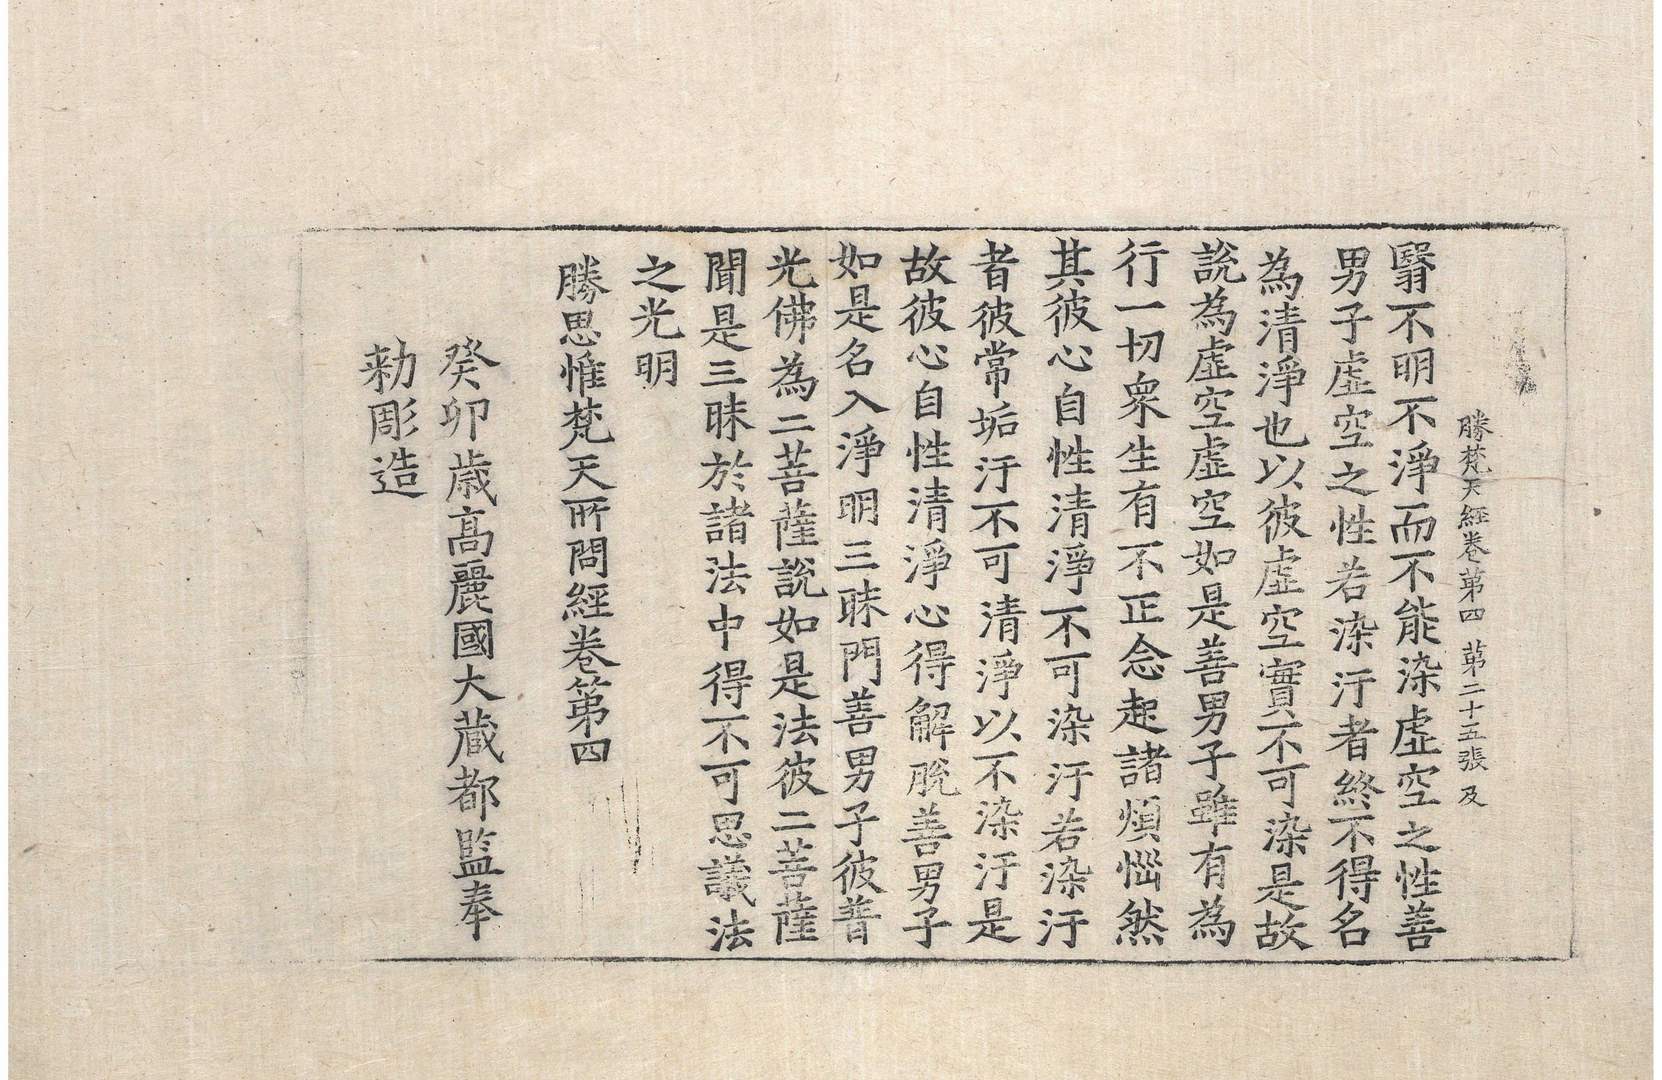 勝梵天經卷第四　第二十五張 及
翳不明不淨而不能染虛空之性善
男子虛空之性若染汙者終不得名
為清淨也以彼虛空實不可染是故
說為虛空虛空如是善男子雖有為
行一切衆生有不正念起諸煩惱然
其彼心自性清淨不可染汙若染汙
者彼常垢汙不可清淨以不染汙是
故彼心自性清淨心得解脫善男子
如是名入淨明三昧門善男子彼普
光佛為二菩薩說如是法彼二菩薩
聞是三昧於諸法中得不可思議法
之光明
勝思惟梵天所問經卷第四
癸卯歲高麗國大藏都監奉
勅彫造